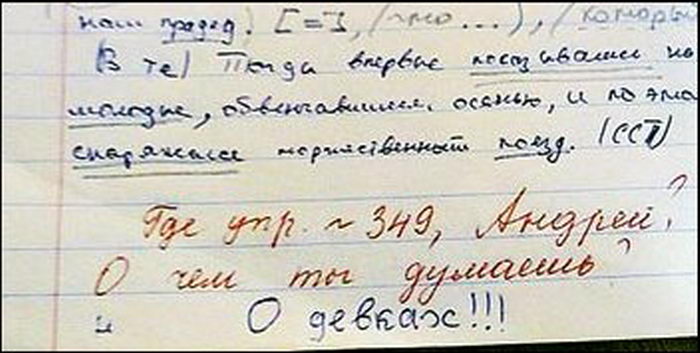 наш прадед. [=], (что ...), (которы
(В те) Тогда впервые показывались на
молодые, обвенчавшиеся осенью, и поэто
снаряжался торжественный поезд. (ССП)
Где упр. ~ 349, Андрей?
О чем ты думаешь?
О девках!!!